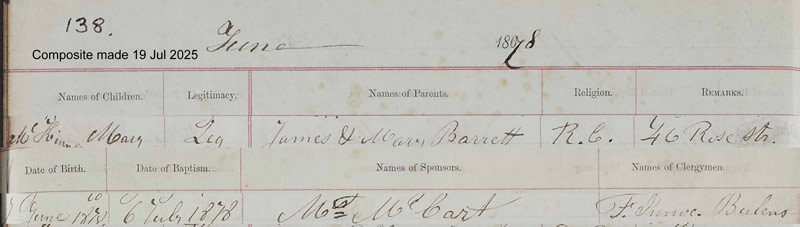 138.
Composite made 19 Jul 2025
June 1878
Names of Children. Legitimacy. Names of Parents. Religion. REMARKS.
Mc Mary Leg James & Mary Barrett R.C. 46 Rose Str.
Date of Birth. Date of Baptism. Names of Sponsors. Names of Clergymen.
June 1878 6 July 1878 Mrs Mc Cart F. Innoc.